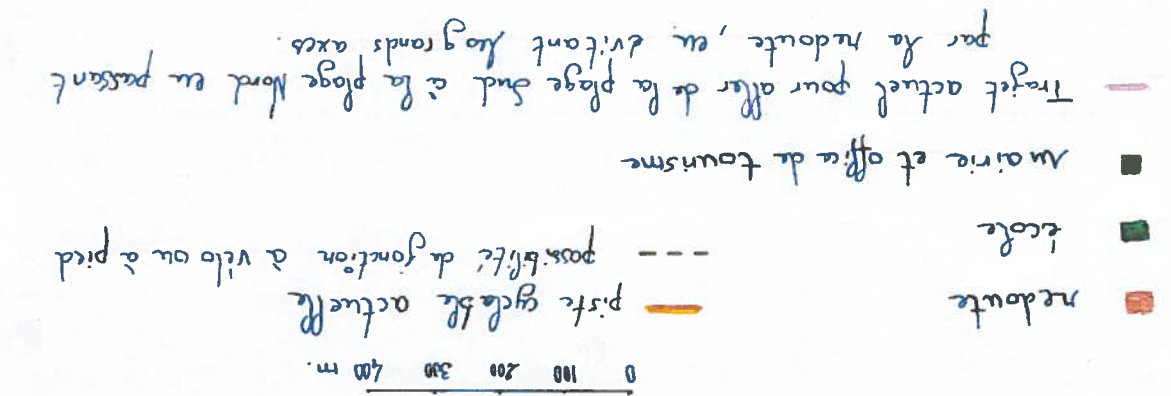 0 100 200 300 400 m.
redoute
piste cyclable actuelle
école
possibilité de jonction à vélo ou à pied
Mairie et office de tourisme
Trajet actuel pour aller de la plage Sud à la plage Nord en passant
par la redoute, en evitant les grands axes.